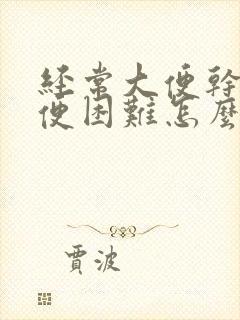 經常大便幹
便困難怎麼
賈波